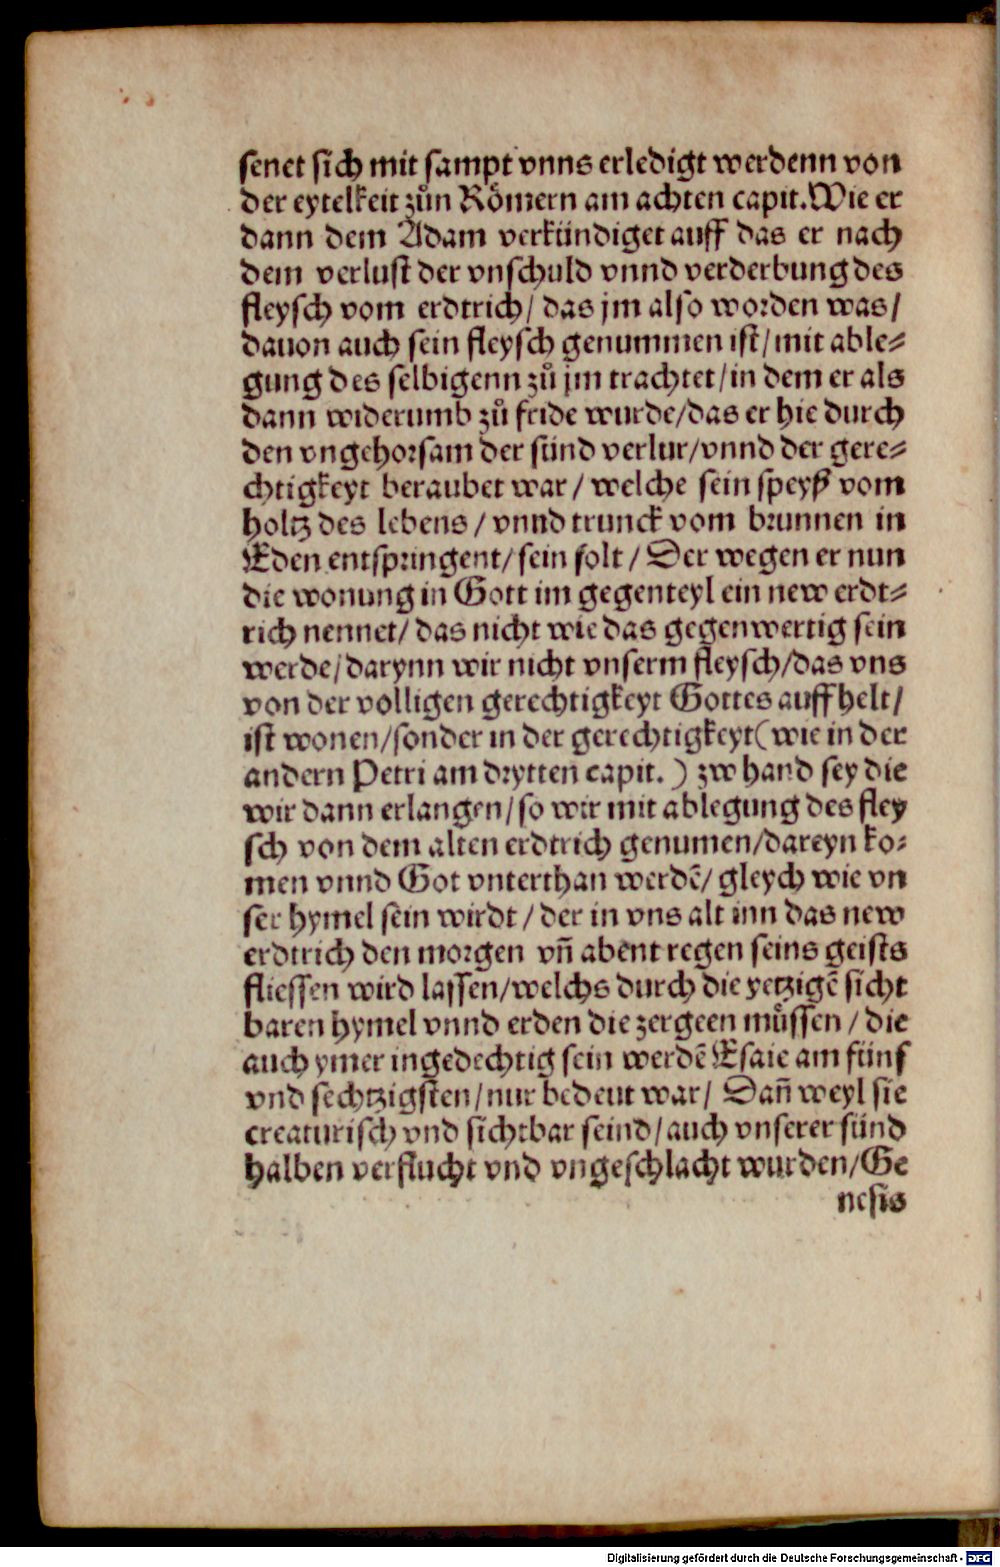 senet sich mit sampt vnns erledigt werdenn von
der eytelkeit zůn Rőmern am achten capit. Wie er
dann dem Adam verkündiget auff das er nach
dem verlust der vnschuld vnnd verderbung des
fleysch vom erdtrich / das jm also worden was /
dauon auch sein fleysch genummen ist / mit able⸗
gung des selbigenn zů jm trachtet / in dem er als
dann widerumb zů fride wurde / das er hie durch
den vngehorsam der sünd verlur / vnnd der gere⸗
chtigkeyt beraubet war / welche sein speyß vom
holtz des lebens / vnnd trunck vom brunnen in
Eden entspringent / sein solt / Der wegen er nun
die wonung in Gott im gegenteyl ein new erdt⸗
rich nennet / das nicht wie das gegenwertig sein
werde / darynn wir nicht vnserm fleysch / das vns
von der volligen gerechtigkeyt Gottes auffhelt /
ist wonen / sonder in der gerechtigkeyt ( wie in der
andern Petri am drytten capit. ) zw hand sey die
wir dann erlangen / so wir mit ablegung des fley
sch von dem alten erdtrich genumen / dareyn ko⸗
men vnnd Got vnterthan werdē / gleych wie vn
ser hymel sein wirdt / der in vns alt inn das new
erdtrich den morgen vn̄ abent regen seins geists
fliessen wird lassen / welchs durch die yetzigē sicht
baren hymel vnnd erden die zergeen můssen / die
auch ymer ingedechtig sein werdē Esaie am fünf
vnd sechtzigsten / nur bedeut war / Dan̄ weyl sie
creaturisch vnd sichtbar seind / auch vnserer sünd
halben verflucht vnd vngeschlacht wurden / Ge
nesis
Digitalisierung gefördert durch die Deutsche Forschungsgemeinschaft - DFG